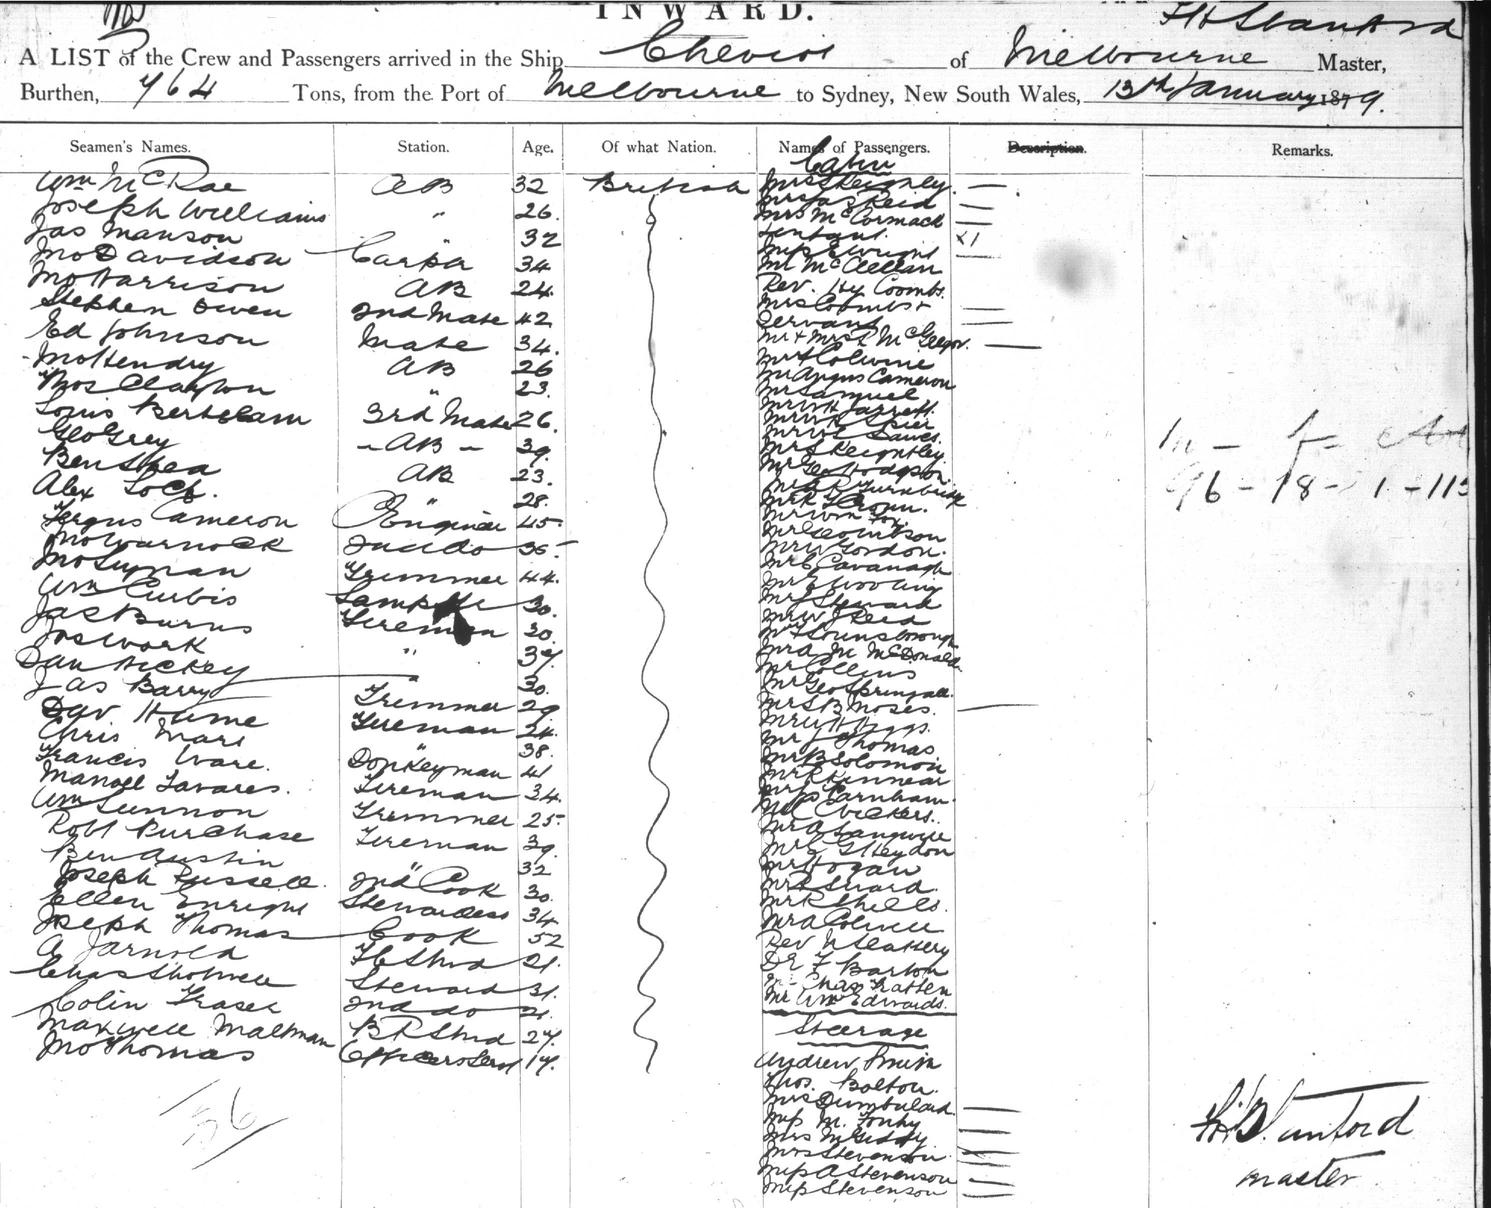 INWARD.
F H Stanford
A LIST of the Crew and Passengers arrived in the Ship Cheviot of Melbourne Master,
Burthen, 764 Tons, from the Port of Melbourne to Sydney, New South Wales, 13th January 1879.
Seamen's Names. Station. Age. Of what Nation. Names of Passengers. Description. Remarks.
Cabin
Wm McRae AB 32 British
Joseph Williams " 26.
Jas Manson " 32
Jno Davidson Carptr 34
Jno Harrison AB 24.
Stephen Owen 2nd Mate 42
Ed Johnson Mate 34.
Jno Hendry AB 26
Thos Clayton " 23.
Louis Bertelam 3rd Mate 26.
Geo Grey AB 39.
Ben Shea AB 23.
Alex Loch. " 28.
Fergus Cameron Enginer 45
Jno Warnock 2nd do 35
Jno Lynan Trimmer 44.
Wm Curtis Lamp 30.
Jas Burns Fireman 30.
Jos Work " 37
Dan Hickey
Jas Barry " 30.
Dav Hume Trimmer 29
Chris Marr Fireman 24.
Francis Ware. " 38.
Manoel Tavares. Donkeyman 41
Wm Lennon Fireman 34.
Robt Purchase Trimmer 25
Ben Austin Fireman 39.
Joseph Russell. " 32
Ellen Enright 2nd Cook 30.
Joseph Thomas Stewardess 34
A Jarnold Cook 52
Chas Shotwell FC Stwd 21.
Colin Fraser Steward 31.
Maxwell Maltman 2nd do 21.
Jno Thomas BR Stwd 27.
Officers Servt 17.
36
Mrs Keighley.
Mrs Jas Reid
Mrs McCormack
Infant. x1
Miss E Wright
Mr McClellan
Rev. Hy Coombs.
Mrs Coombs +
Servant
Mr + Mrs R McGregor.
Mr Colvine
Mr Angus Cameron
Mr Samuel
Mr W H Jarrett.
Mr Spier
Mr Sawes.
Mr S Keightley
Mr Geo Hodgson.
Mr Turnbridge
Mr Wm Fox.
Mr Geo Wilson
Mr W Gordon.
Mr C Cavanagh
Mr E Wooling
Mr J Steward
Mr W J Reid
Mr Lounsborough
Mr A M McDonald
Mr Collins
Mr Geo Springall.
Mr S B Moses.
Mr W H Biggs.
Mr J Thomas
Mr B Solomon
Mr R Kinnear
Mr Farnham.
Mr C Vickers.
Mr A Langwill
Mr G Heydon
Mr Hogan
Mr R Shiells.
Mr A Oliver
Rev N Slattery
Dr F Barton
Mr Chas Tratten
Mr Wm Edwards.
Steerage
Andrew Smith
Thos. Bolton.
Mrs Dumbulard.
Miss M. Fonhy
Mrs McGiddy
Mrs Stevenson
Miss A Stevenson
Miss Stevenson
m - f - ch
96 - 18 - 1 - 115
F H Stanford
Master